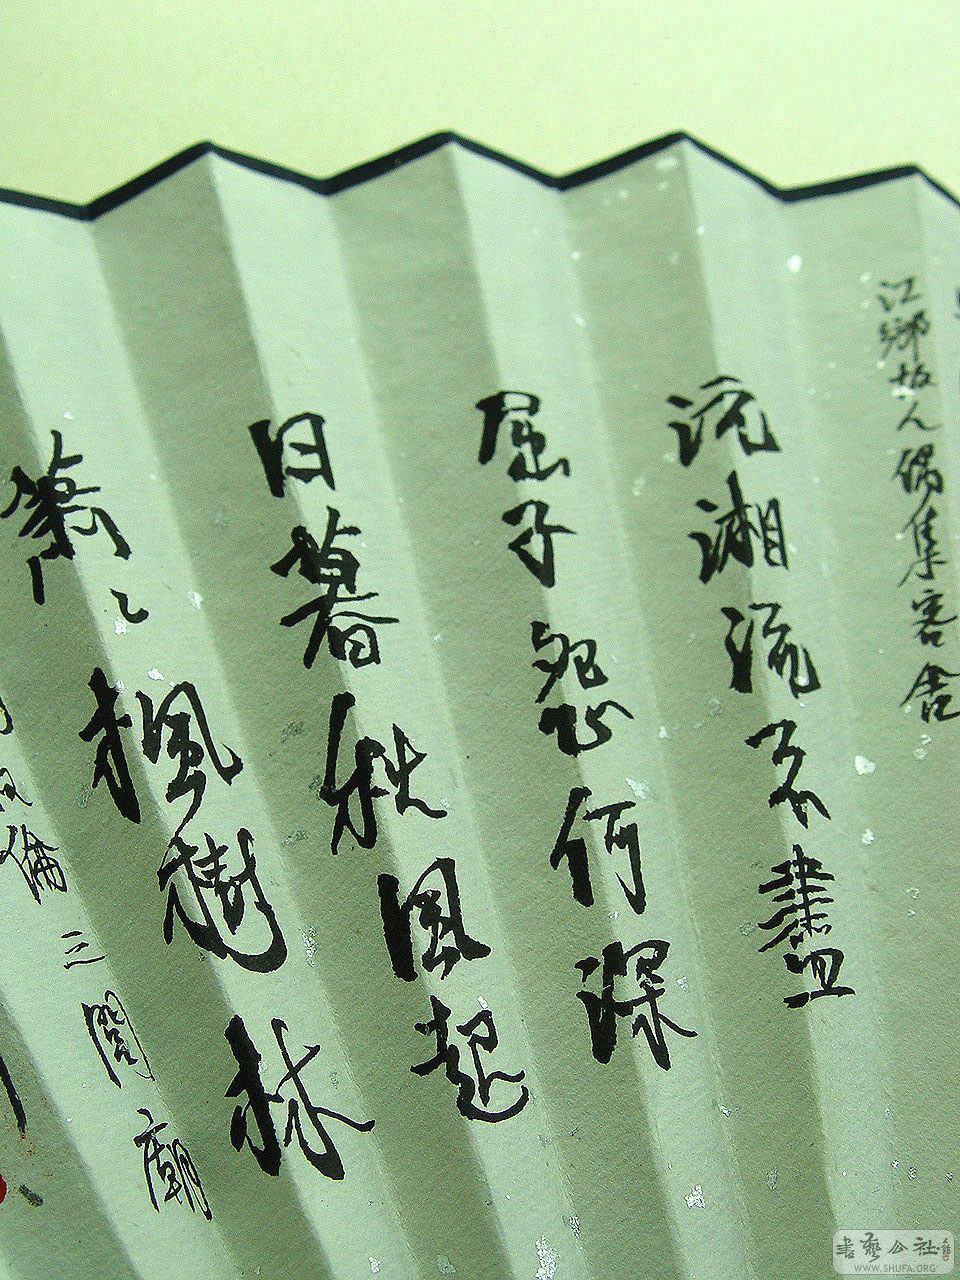 江鄉故人偶集客舍
沅湘流不盡
屈子怨何深
日暮秋風起
蕭〻楓樹林
叔倫三閭廟
書藝公社
WWW.SHUFA.ORG